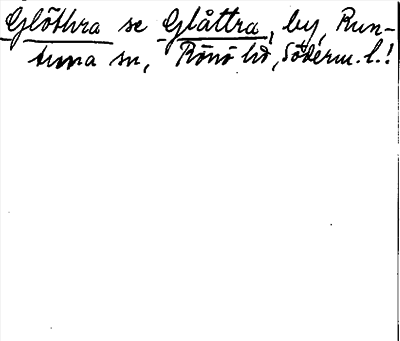 Glöthra se Glåttra, by, Run-
tuna sn, Rönö hd, Söderm. l.!